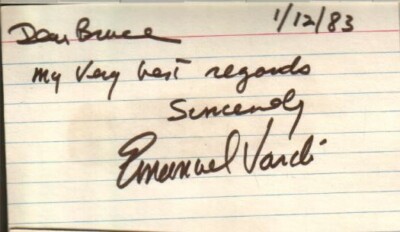 1/12/83
Dear Bruce
my very best regards
Sincerely
Emanuel Vardi